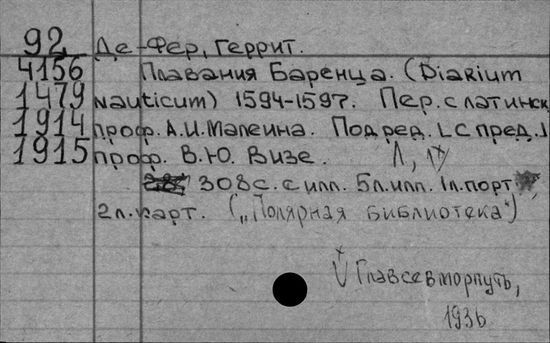 92 Де-Фер, Геррит.
4156 Плавания Баренца. (Diarium
1479 Nauticum) 1594-1597. Пер. с латинск
1914 проф. А.И. Малеина. Под ред. [с пред.]
1915 проф. В.Ю. Визе. Л,
308с. с илл. 5л.илл. 1л.порт
2л.карт. („Полярная библиотека")
Главсевморпуть,
1936